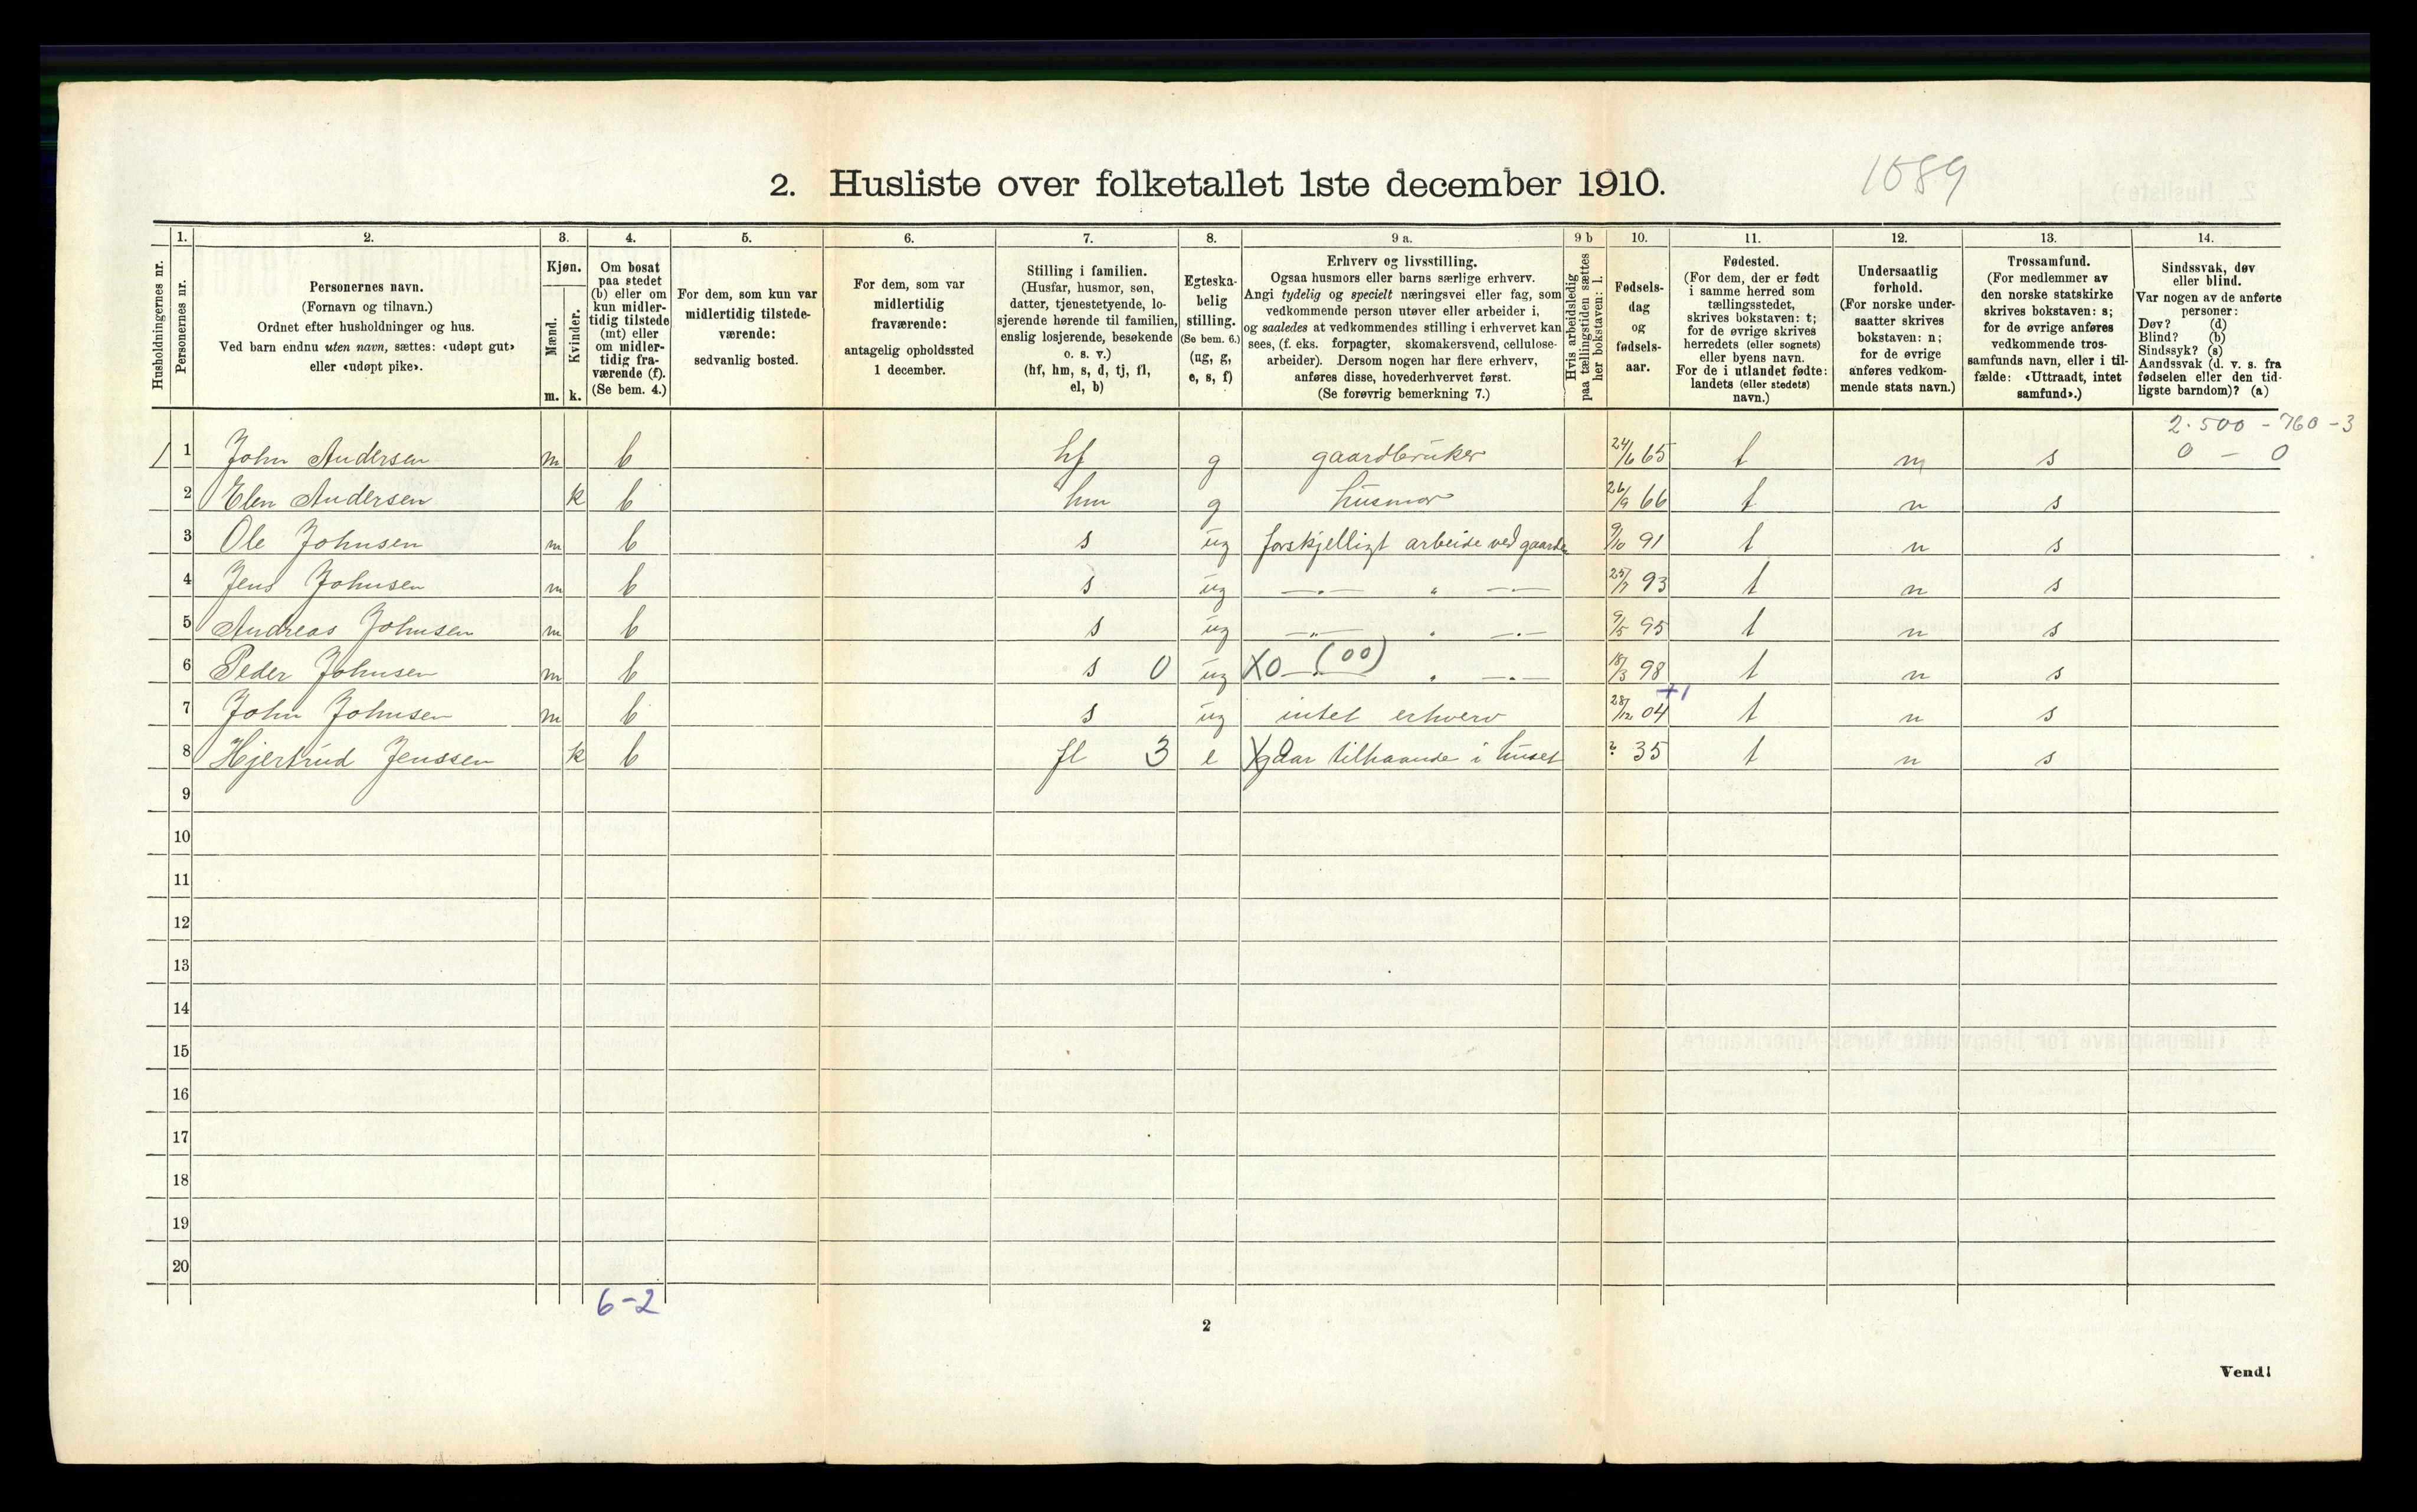 2. Husliste over folketallet 1ste december 1910.
1089
Husholdningernes nr.
1.
Personernes nr.
2.
Personernes navn.
(Fornavn og tilnavn.)
Ordnet efter husholdninger og hus.
Ved barn endnu uten navn, sættes: «udøpt gut»
eller «udøpt pike».
3.
Kjøn.
Mænd.
Kvinder.
m. k.
4.
Om bosat
paa stedet
(b) eller om
kun midler-
tidig tilstede
(mt) eller
om midler-
tidig fra-
værende (f).
(Se bem. 4.)
5.
For dem, som kun var
midlertidig tilstede-
værende:
sedvanlig bosted.
6.
For dem, som var
midlertidig
fraværende:
antagelig opholdssted
1 december.
7.
Stilling i familien.
(Husfar, husmor, søn,
datter, tjenestetyende, lo-
sjerende hørende til familien,
enslig losjerende, besøkende
o. s. v.)
(hf, hm, s, d, tj, fl,
el, b)
8.
Egteska-
belig
stilling.
(Se bem. 6.)
(ug, g,
e, s, f)
9 a.
Erhverv og livsstilling.
Ogsaa husmors eller barns særlige erhverv.
Angi tydelig og specielt næringsvei eller fag, som
vedkommende person utøver eller arbeider i,
og saaledes at vedkommendes stilling i erhvervet kan
sees, (f. eks. forpagter, skomakersvend, cellulose-
arbeider). Dersom nogen har flere erhverv,
anføres disse, hovederhvervet først.
(Se forøvrig bemerkning 7.)
9 b
Hvis arbeidsledig
paa tællingstiden sættes
her bokstaven: l.
10.
Fødsels-
dag
og
fødsels-
aar.
11.
Fødested.
(For dem, der er født
i samme herred som
tællingsstedet,
skrives bokstaven: t;
for de øvrige skrives
herredets (eller sognets)
eller byens navn.
For de i utlandet fødte:
landets (eller stedets)
navn.)
12.
Undersaatlig
forhold.
(For norske under-
saatter skrives
bokstaven: n;
for de øvrige
anføres vedkom-
mende stats navn.)
13.
Trossamfund.
(For medlemmer av
den norske statskirke
skrives bokstaven: s;
for de øvrige anføres
vedkommende tros-
samfunds navn, eller i til-
fælde: «Uttraadt, intet
samfund».)
14.
Sindssvak, døv
eller blind.
Var nogen av de anførte
personer:
Døv? (d)
Blind? (b)
Sindssyk? (s)
Aandssvak (d. v. s. fra
fødselen eller den tid-
ligste barndom)? (a)
2.500 - 760 - 3
1 1 John Andersen m b hf g gaardbruker 24/6 65 t n s 0 - 0
2 Elen Andersen k b hm g husmor 26/9 66 t n s
3 Ole Johnsen m b s ug forskjelligt arbeide ved gaarden 9/10 91 t n s
4 Jens Johnsen m b s ug —„— „ —„— 25/7 93 t n s
5 Andreas Johnsen m b s ug —„— „ —„— 9/5 95 t n s
6 Peder Johnsen m b s 0 ug X0 —„— (00) „ —„— 18/3 98 t n s
+1
7 John Johnsen m b s ug intet erhverv 28/12 04 t n s
8 Hjertrud Jenssen k b fl 3 e X gaar tilhaande i huset ? 35 t n s
9
10
11
12
13
14
15
16
17
18
19
20
6-2
2
Vend!